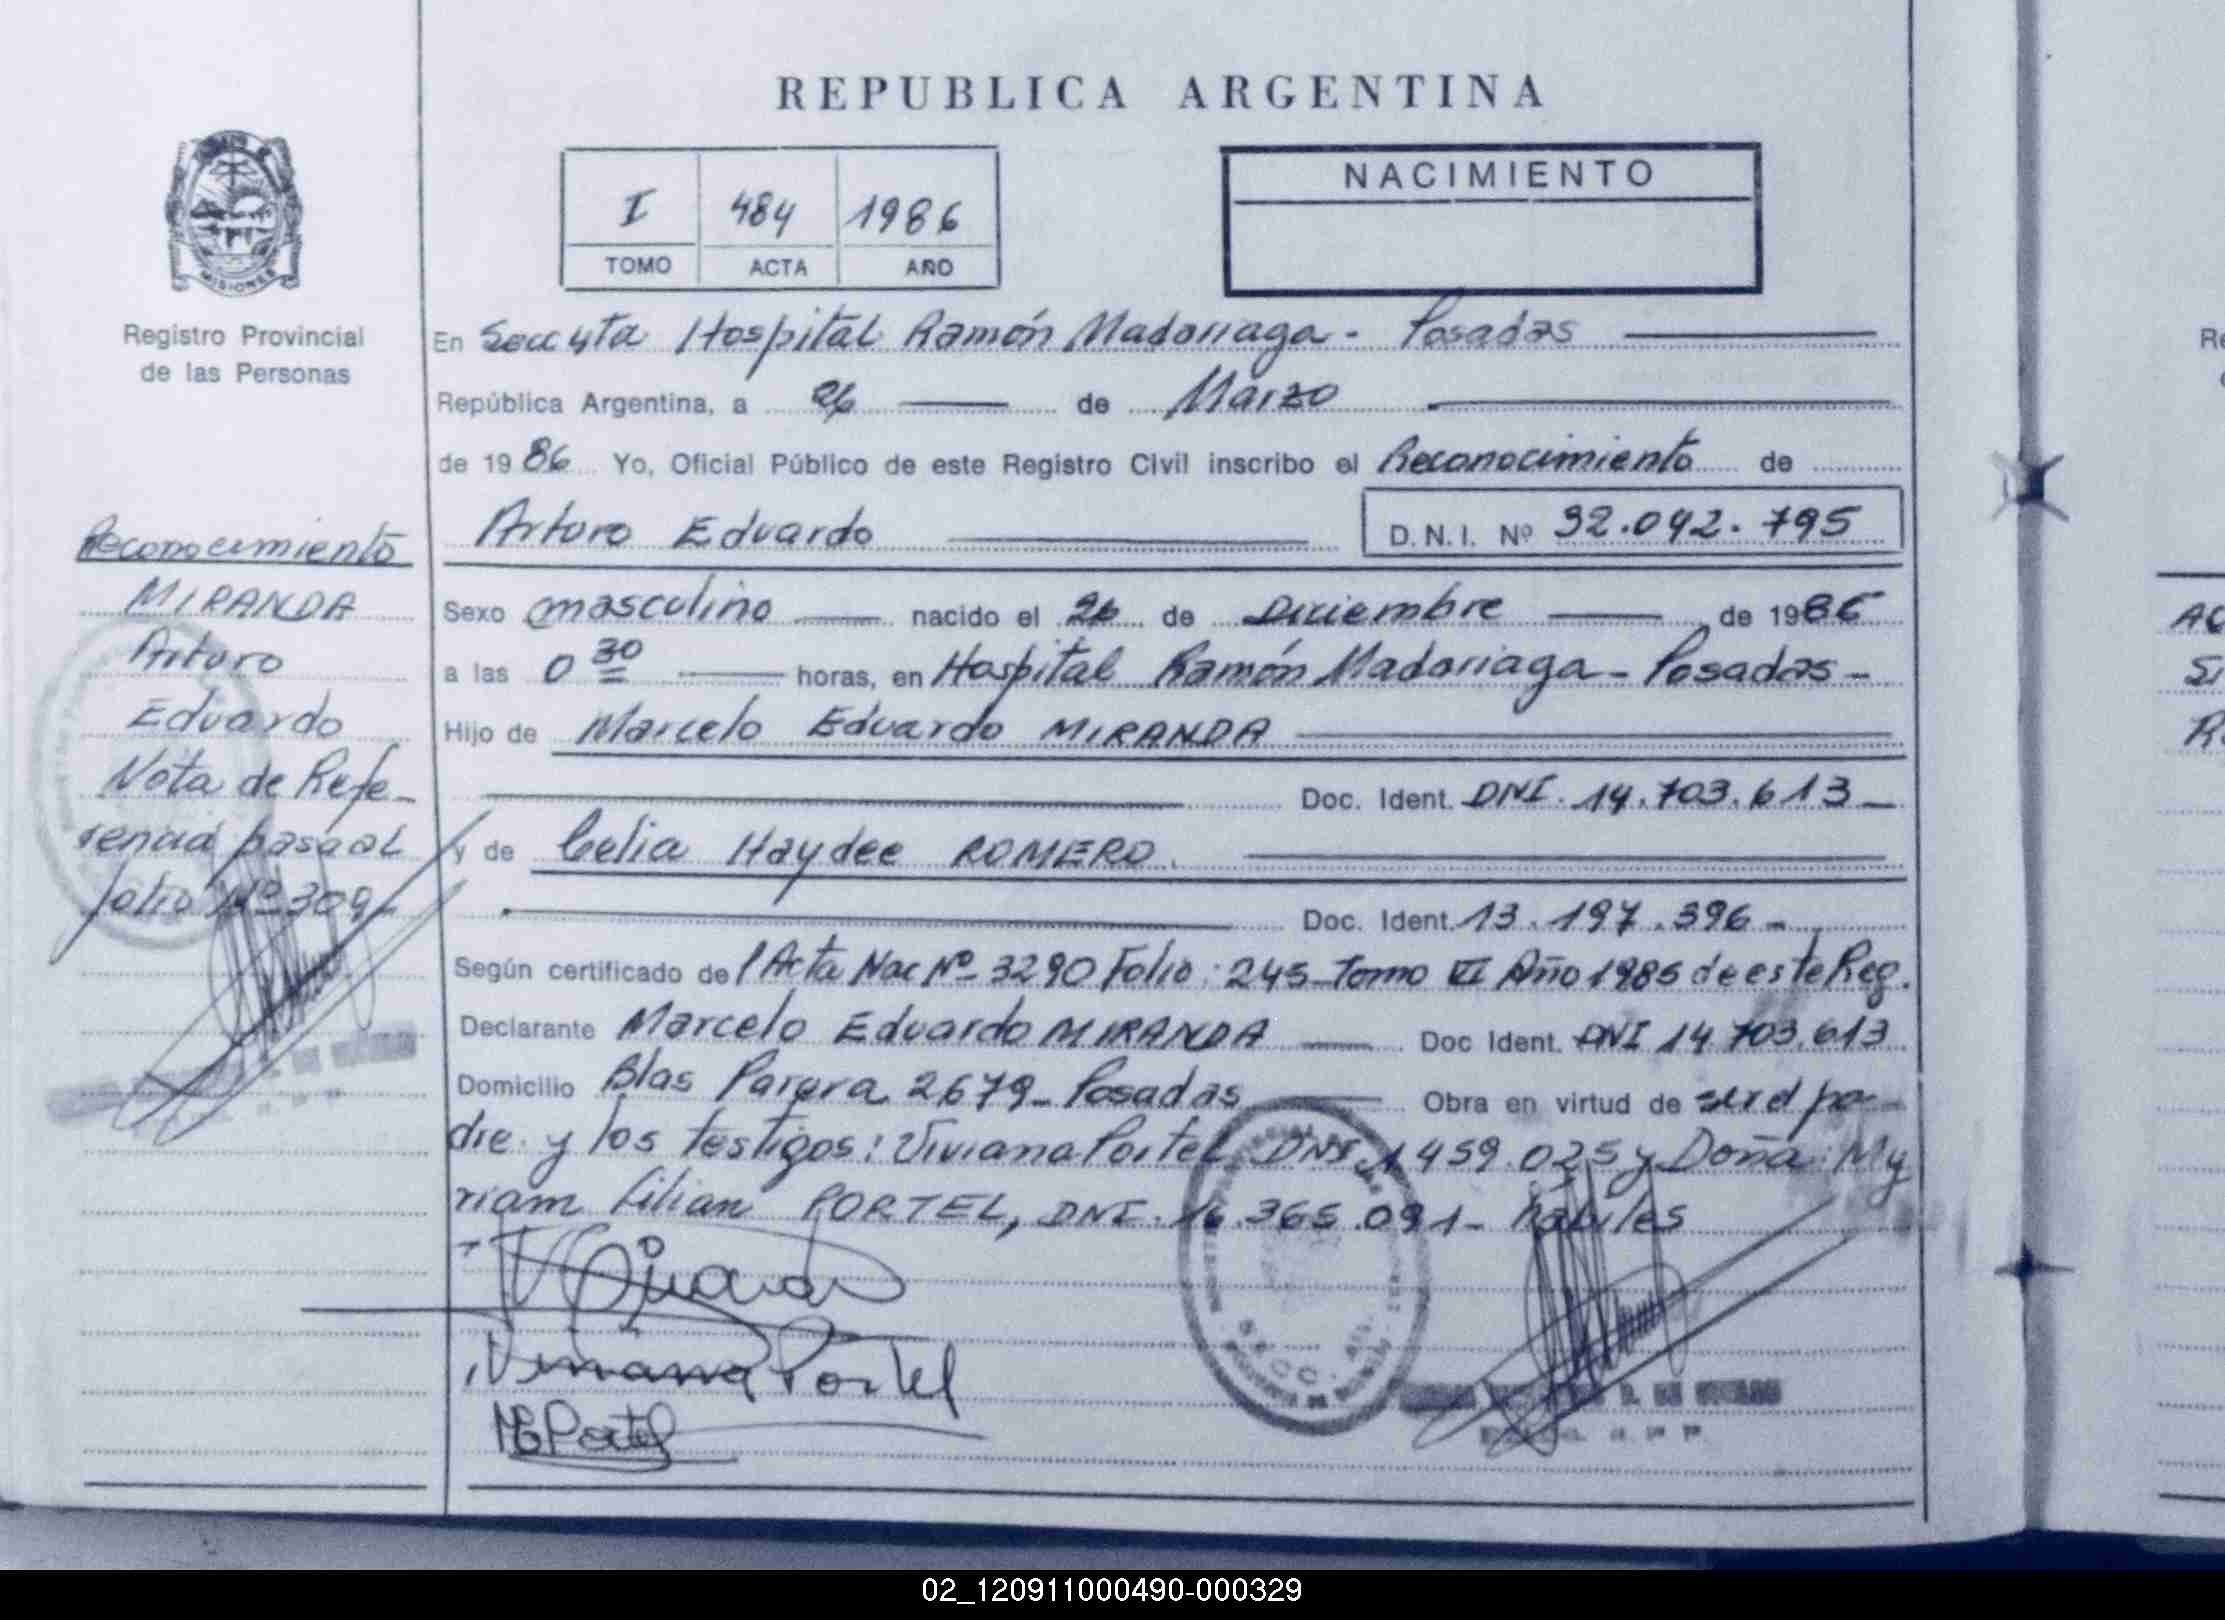 REPUBLICA ARGENTINA
I 484 1986
TOMO ACTA AÑO
NACIMIENTO
MISIONES
Registro Provincial
de las Personas
En Secc 4ta Hospital Ramón Madariaga - Posadas
República Argentina, a 26 de Marzo
de 1986 Yo, Oficial Público de este Registro Civil inscribo el Reconocimiento de
Arturo Eduardo D.N.I. Nº 32.042.795
Sexo masculino nacido el 26 de Diciembre de 1985
a las 0 30 horas, en Hospital Ramón Madariaga - Posadas -
Hijo de Marcelo Eduardo MIRANDA
Doc. Ident. DNI. 14.703.613 -
y de Celia Haydee ROMERO.
Doc. Ident. 13.197.396 -
Según certificado de / Acta Nac Nº 3290 Folio: 245 - Tomo VI Año 1985 de este Reg.
Declarante Marcelo Eduardo MIRANDA Doc Ident. DNI 14.703.613
Domicilio Blas Parera 2679 - Posadas Obra en virtud de ser el pa-
dre y los testigos: Viviana Portel DNI 459.025 y Doña: My
riam Lilian PORTEL, DNI. 16.365.091 - hábiles
Viviana Portel
Portel
Reconocimiento
MIRANDA
Arturo
Eduardo
Nota de Refe-
rencia pasa al
folio Nº 309 -
02_120911000490-000329